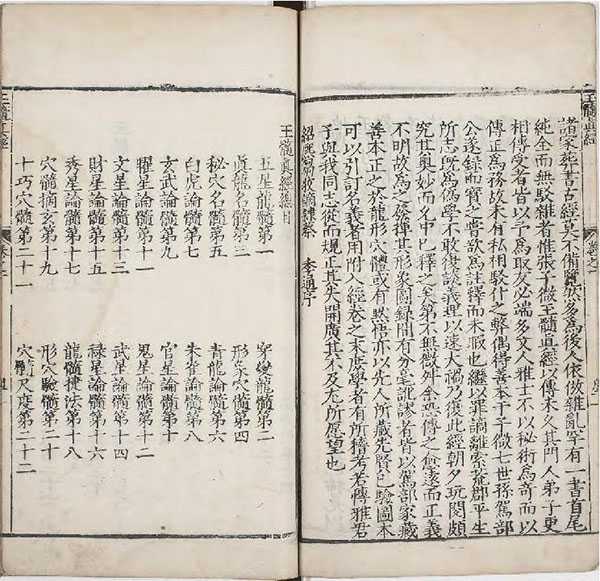 諸家葬書古經莫不備贍然多為後人依倣雜亂罕有一書首尾
純全而無駁雜者惟張子微玉髓真經以傳未久其門人弟子更
相傳受者皆以予為取友必端多文人雅士不以秘術為奇而以
傳正為務故未有私相駁什之弊偶得善本于子微七世孫駕部
公遂録而寶之嘗欲為註釋而未暇也繼以罪謫離索荒郡平生
所志既為偽學不敢復談義理以速大禍乃復此經朝夕玩閱頗
究其奥妙而名中已釋之矣第不無舛余恐傳之愈遠而正義
不明故為之發揮其形象圖録間有分是訛謬者皆以駕部家藏
善本正之於龍形穴體或有默悟亦以先人所藏先賢已驗圖本
可以引訂名義者用附入經卷之末庶學者有所稽考若博雅君
子與我同志從而規正其失開廣其不及尤所愿望也
紹熙 蔡季通序
玉髓真經總目
五星龍髓第一 穿變龍髓第二
真龍名髓第三 形氣穴髓第四
秘穴名髓第五 青龍論髓第六
白虎論髓第七 朱雀論髓第八
玄武論髓第九 官星論髓第十
曜星論髓第十一 鬼星論髓第十二
文星論髓第十三 武星論髓第十四
財星論髓第十五 祿星論髓第十六
秀星論髓第十七 龍髓捷法第十八
穴髓摘玄第十九 形穴驗髓第二十
十巧穴髓第二十一 穴髓尺度第二十二
玉髓真經